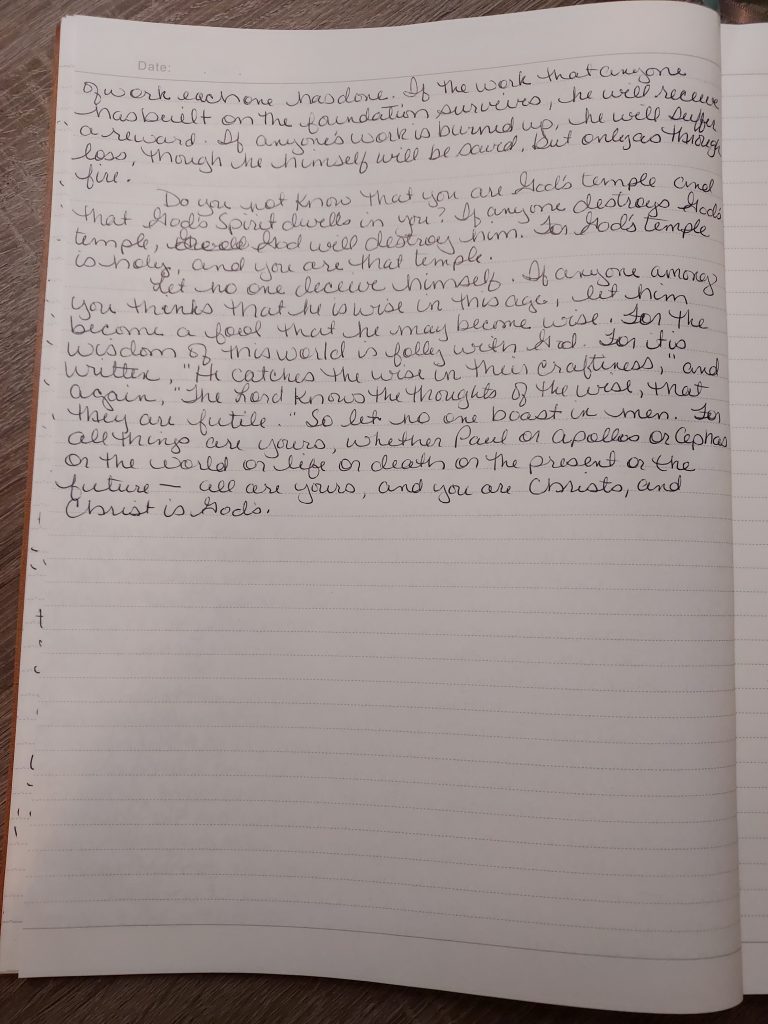 Date:
of work each one has done. If the work that anyone
has built on the foundation survives, he will receive
a reward. If anyone's work is burned up, he will suffer
loss, though he himself will be saved, but only as through
fire.
Do you not know that you are God's temple and
that God's Spirit dwells in you? If anyone destroys God's
temple, God will destroy him. For God's temple
is holy, and you are that temple.
Let no one deceive himself. If anyone among
you thinks that he is wise in this age, let him
become a fool that he may become wise. For the
wisdom of this world is folly with God. For it is
written, "He catches the wise in their craftiness," and
again, "The Lord knows the thoughts of the wise, that
they are futile." So let no one boast in men. For
all things are yours, whether Paul or Apollos or Cephas
or the world or life or death or the present or the
future — all are yours, and you are Christs, and
Christ is God's.